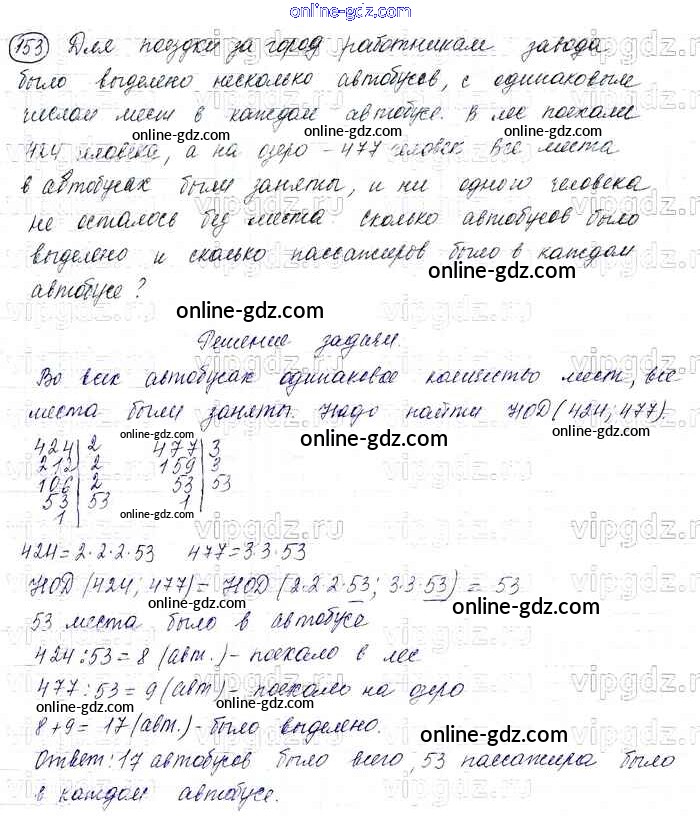 online-gdz.com
153 Для поездки за город работникам завода
было выделено несколько автобусов, с одинаковым
числом мест в каждом автобусе. В лес поехали
online-gdz.com online-gdz.com
424 человека, а на озеро - 477 человек Все места
в автобусах были заняты, и ни одного человека
не осталось без места. Сколько автобусов было
online-gdz.com online-gdz.com
выделено и сколько пассажиров было в каждом
online-gdz.com
автобусе?
online-gdz.com
Решение задачи.
online-gdz.com
Во всех автобусах одинаковое количество мест, все
места были заняты. Надо найти НОД (424; 477)
online-gdz.com
online-gdz.com
424 2 477 3
212 2 159 3
106 2 53 53
53 53 1
1
online-gdz.com
424 = 2·2·2·53 477 = 3·3·53
НОД (424; 477) = НОД (2·2·2·53; 3·3·53) = 53
online-gdz.com online-gdz.com
53 места было в автобусе
424 : 53 = 8 (авт.) - поехало в лес
online-gdz.com
477 : 53 = 9 (авт) - поехало на озеро
online-gdz.com
8 + 9 = 17 (авт.) - было выделено.
online-gdz.com
Ответ: 17 автобусов было всего, 53 пассажира было
online-gdz.com
online-gdz.com
в каждом автобусе.
vipgdz.ru